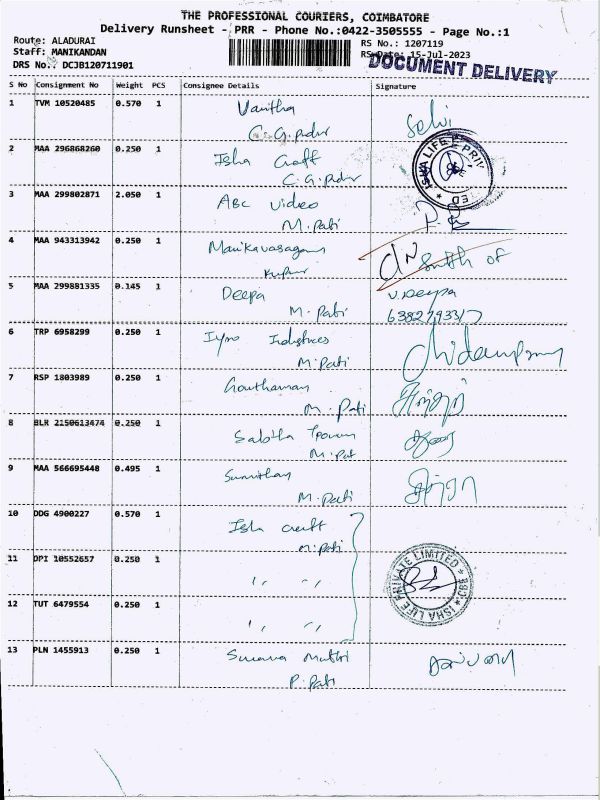 THE PROFESSIONAL COURIERS, COIMBATORE
Delivery Runsheet - PRR - Phone No.:0422-3505555 - Page No.:1
Route: ALADURAI
RS No.: 1207119
Staff: MANIKANDAN
RS Date: 15-Jul-2023
DRS No.: DCJB120711901
DOCUMENT DELIVERY
S No Consignment No Weight PCS Consignee Details Signature
1 TVM 10520485 0.570 1 Vanitha
C.G.pudur
Selvi
2 MAA 296868260 0.250 1 Isha Craft
C.G.pudur
ISHA LIFE PRIV
3 MAA 299802871 2.050 1 ABC Video
M.Pati
4 MAA 943313942 0.250 1 Manikavasagam
5 MAA 299881335 0.145 1 Deepa
M.Pati
V.Deepa
6 TRP 6958299 0.250 1 Industries
M.Pati
7 RSP 1803989 0.250 1 Gouthaman
M.Pati
8 BLR 2150613474 0.250 1 Sabitha
M.Pat
9 MAA 566695448 0.495 1
M.Pati
10 DDG 4900227 0.570 1 Isha Craft
M.Pati
11 DPI 10552657 0.250 1 " "
12 TUT 6479554 0.250 1 " "
ISHA LIFE PRIVATE LIMITED
13 PLN 1455913 0.250 1
P.Pati